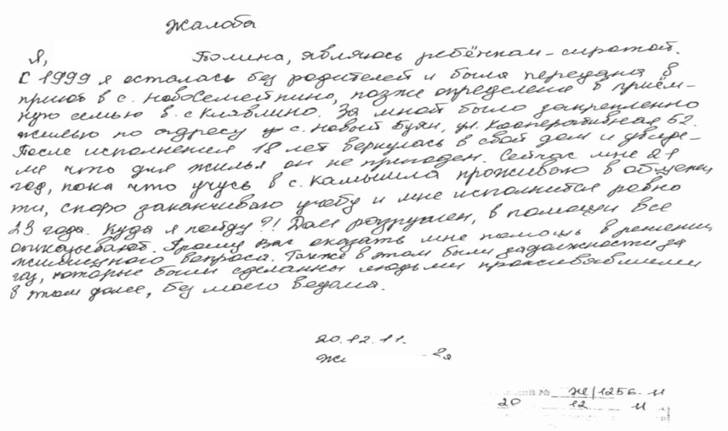 Жалоба
Я, Полина, являюсь ребёнкам-сиротой.
С 1999 я осталась без родителей и была передана в
приют в с. Новосемейкино, позже определена в приём-
ную семью в с. Клявлино. За мной было закрепленно
жильё по адресу с. Новый Буян, ул. Кооперативная 62.
После исполнения 18 лет вернулась в свой дом и увиде-
ла что для жилья он не пригоден. Сейчас мне 21
год, пока что учусь в с. Камышла проживаю в общежи
тии, скоро заканчиваю учёбу и мне исполнится ровно
23 года. Куда я пойду?! Дом разрушен, в помощи все
отказывают. Прошу вас оказать мне помощь в решении
жилищного вопроса. Также в этом были задолжности за
газ, которые были сделанны людьми проживавшими
в этом доме, без моего ведома.
20.12.11.
Ж
Ж/1256 11
20 12 11